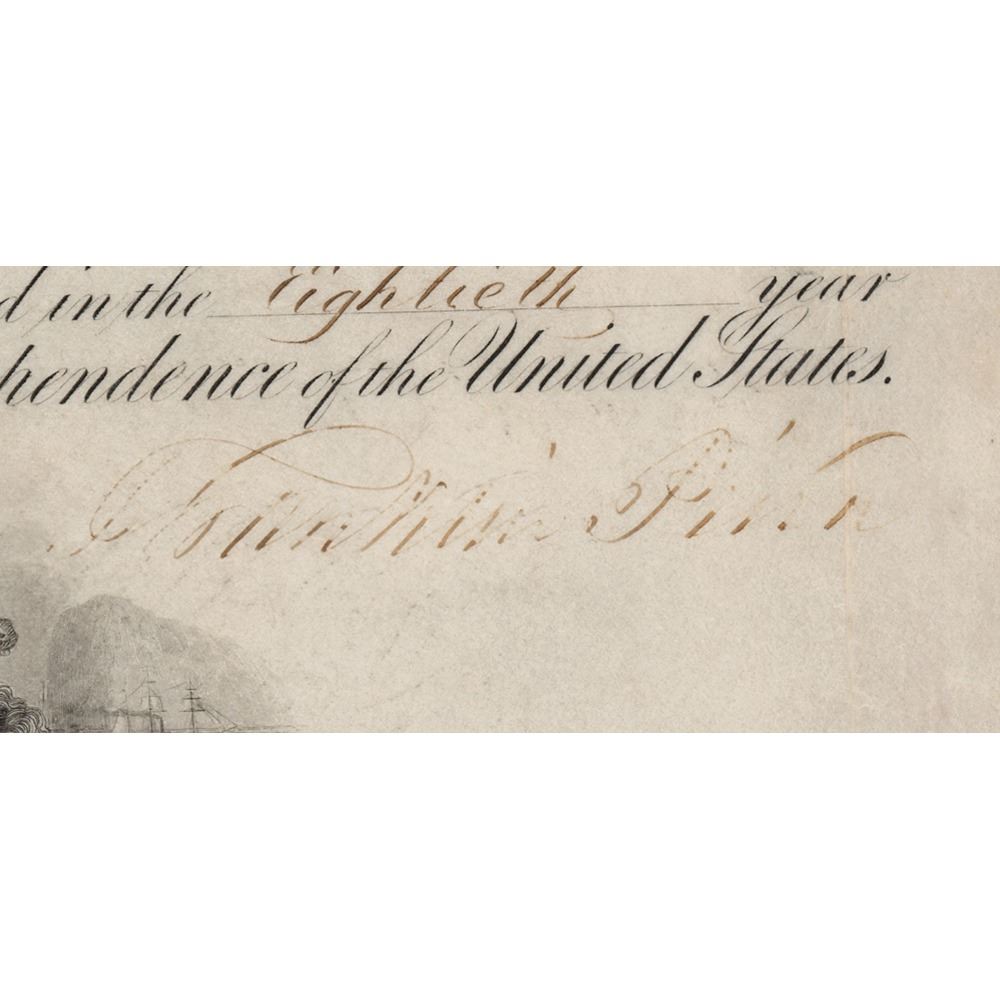 d in the Eightieth year
hendence of the United States.
Franklin Pierce